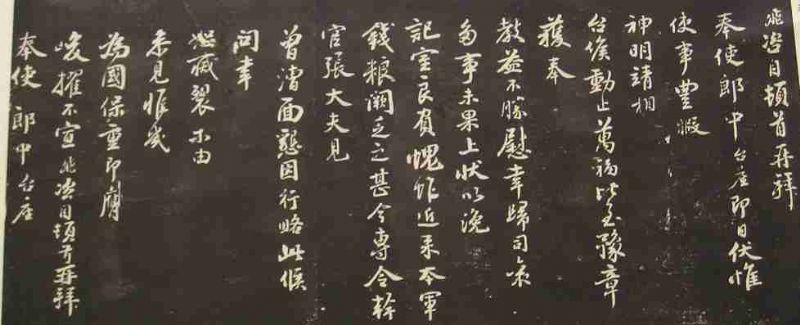 飛咨目頓首再拜
奉使郎中台座即日伏惟
使事豐暇
神明靖相
台候動止萬福比至豫章
獲奉
教益不勝慰幸歸司
多事未果上狀以浼
記室良負愧怍近來本軍
錢粮闕乏之甚今專令幹
官張大夫見
曾漕面懇因行略此候
問幸
滅裂由
見惟
為國保重即膺
峻擢不宣飛咨目頓首再拜
奉使郎中台座